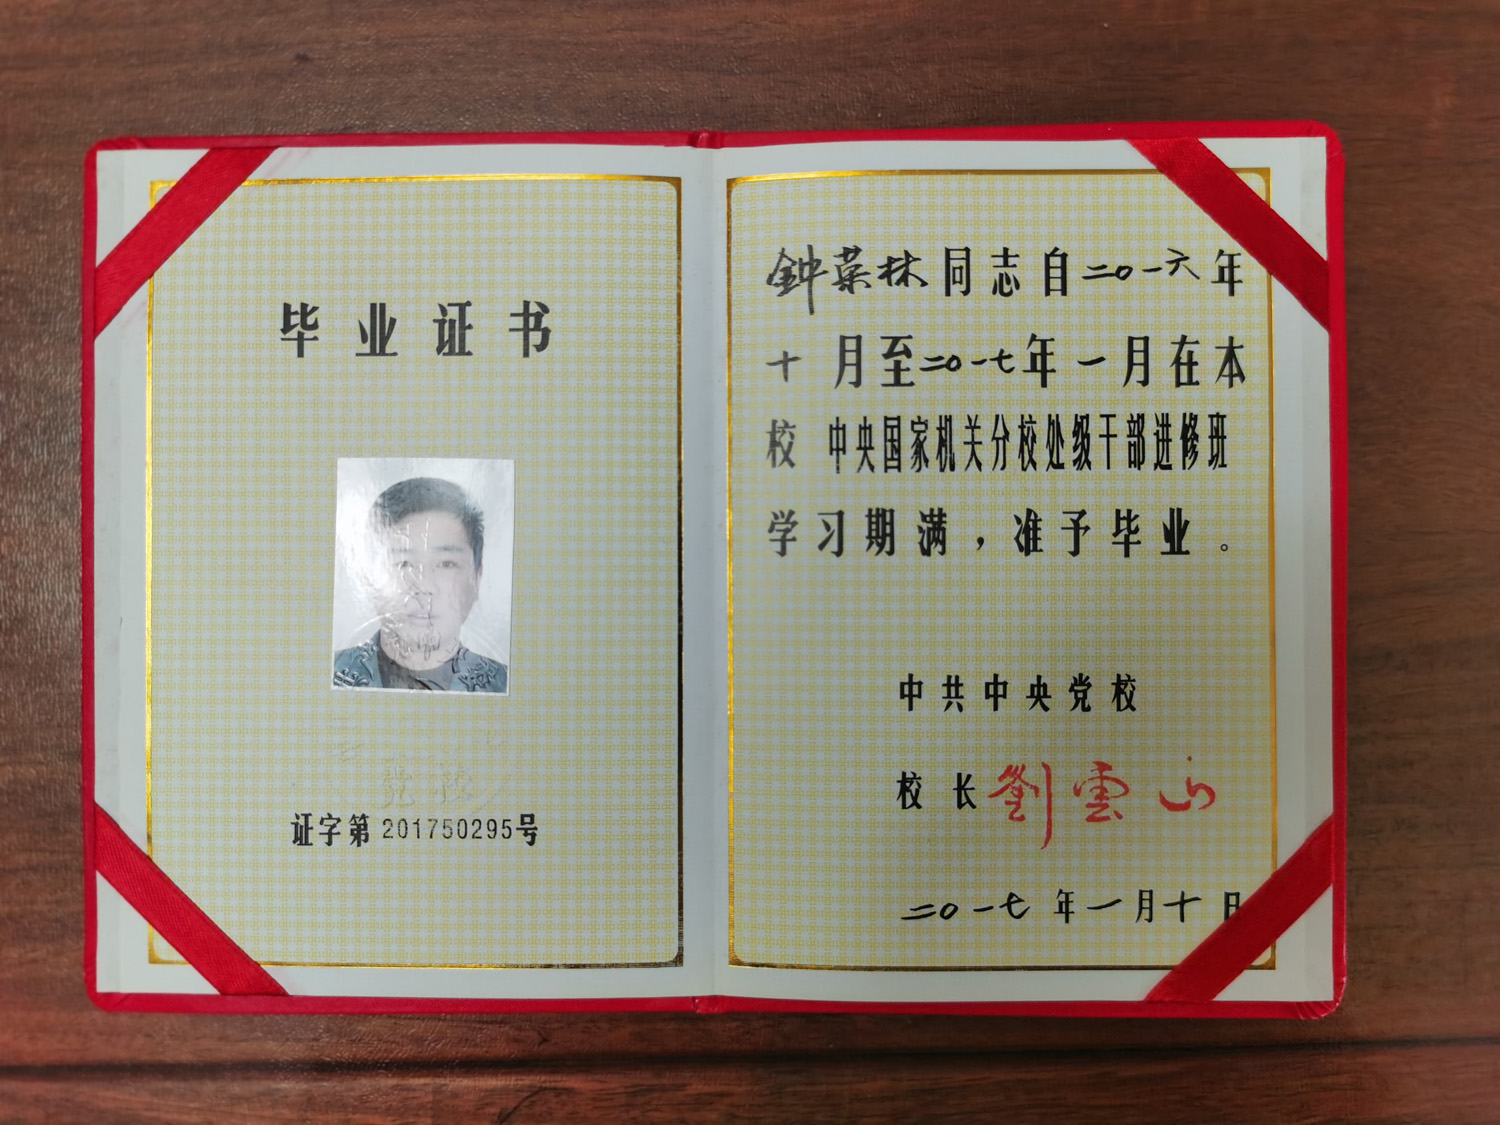 毕业证书
证字第201750295号
钟荣林同志自二〇一六年
十月至二〇一七年一月在本
校 中央国家机关分校处级干部进修班
学习期满，准予毕业。
中共中央党校
校长 劉雲山
二〇一七年一月十日